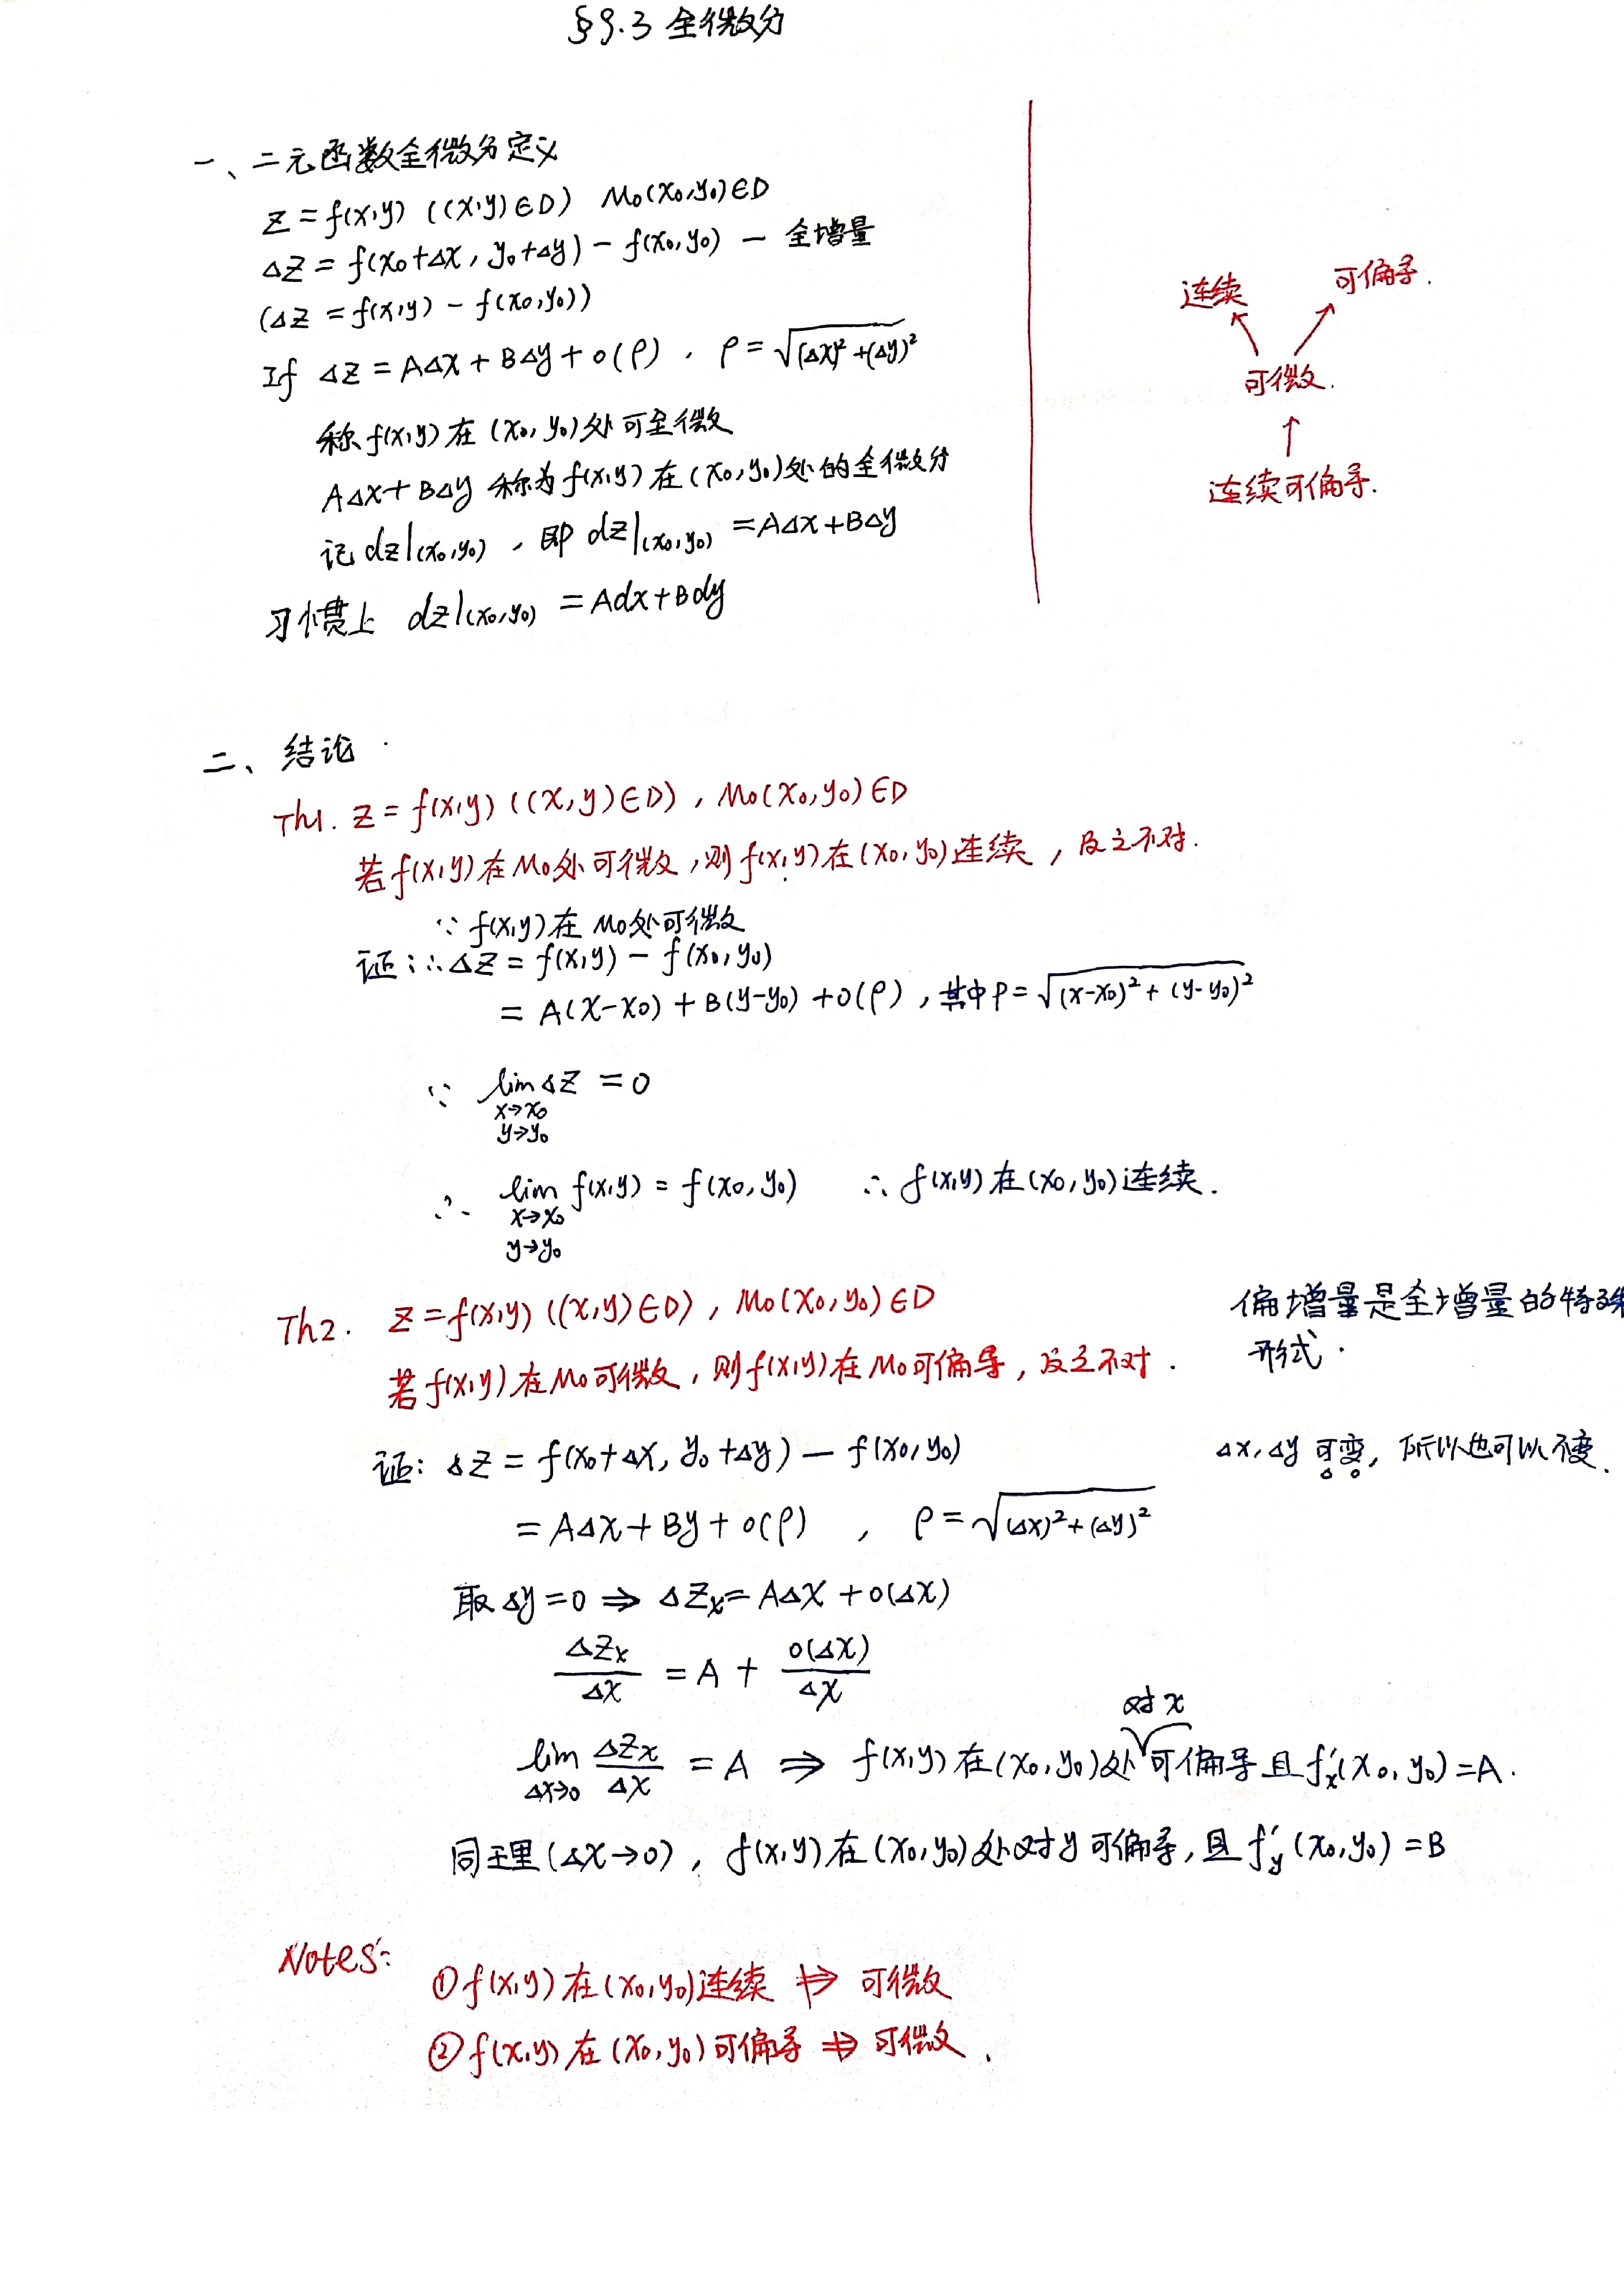 §9.3 全微分
一、二元函数全微分定义
Z = f(x,y) ((x,y)∈D) M₀(x₀,y₀)∈D
ΔZ = f(x₀+Δx, y₀+Δy) − f(x₀,y₀) — 全增量
(ΔZ = f(x,y) − f(x₀,y₀))
If ΔZ = AΔx + BΔy + o(ρ), ρ = √((Δx)²+(Δy)²)
称 f(x,y) 在 (x₀,y₀) 处可全微
AΔx + BΔy 称为 f(x,y) 在 (x₀,y₀) 处的全微分
记 dz|(x₀,y₀), 即 dz|(x₀,y₀) = AΔx + BΔy
习惯上 dz|(x₀,y₀) = Adx + Bdy
连续 可偏导.
↖ ↗
可微.
↑
连续可偏导.
二、结论
Th1. Z = f(x,y) ((x,y)∈D), M₀(x₀,y₀)∈D
若 f(x,y) 在 M₀ 处可微, 则 f(x,y) 在 (x₀,y₀) 连续, 反之不对.
∵ f(x,y) 在 M₀ 处可微
证: ∴ ΔZ = f(x,y) − f(x₀,y₀)
= A(x−x₀) + B(y−y₀) + o(ρ), 其中 ρ = √((x−x₀)²+(y−y₀)²)
∵ lim ΔZ = 0
x→x₀
y→y₀
∴ lim f(x,y) = f(x₀,y₀) ∴ f(x,y) 在 (x₀,y₀) 连续.
x→x₀
y→y₀
Th2. Z = f(x,y) ((x,y)∈D), M₀(x₀,y₀)∈D
若 f(x,y) 在 M₀ 可微, 则 f(x,y) 在 M₀ 可偏导, 反之不对.
偏增量是全增量的特殊
形式.
证: ΔZ = f(x₀+Δx, y₀+Δy) − f(x₀,y₀)
Δx, Δy 可变, 所以也可以不变.
= AΔx + By + o(ρ), ρ = √((Δx)²+(Δy)²)
取 Δy = 0 ⇒ ΔZx = AΔx + o(Δx)
ΔZx/Δx = A + o(Δx)/Δx
对 x
lim ΔZx/Δx = A ⇒ f(x,y) 在 (x₀,y₀) 处可偏导且 f′x(x₀,y₀) = A.
Δx→0
同理 (Δx→0), f(x,y) 在 (x₀,y₀) 处对 y 可偏导, 且 f′y(x₀,y₀) = B
Notes:
① f(x,y) 在 (x₀,y₀) 连续 ⇏ 可微
② f(x,y) 在 (x₀,y₀) 可偏导 ⇏ 可微.